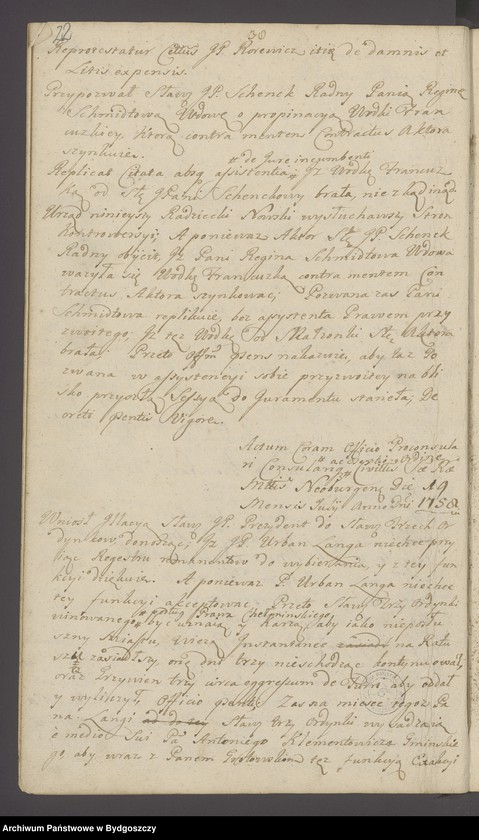 22
30
Reprotestatur Cttus JP. Korewicz itiq de damnis et
Litis expensis.
Przypozwał Sławy JP. Schenck Radny Panią Reginę
Schmidtową Wdowę o propinacyą Wodki Fran
cuzkiey, ktorą contra mentem Contractus Aktora
szynkuie.
# de Jure incumbenti
Replicat Citata absq assistentia # Jż Wodkę Francuz
ką od Słę JPani Schenckowy brała, nie zkąd inąd
Urząd ninieyszy Radziecki Nowski wysłuchawszy Stron
kontrowersyi, A ponieważ Aktor Słę JP. Schenck
Radny obiicit, Jż Pani Regina Schmidtowa Wdowa
ważyła się Wodkę Francuzką contra mentem Con
tractus Aktora szynkować, Pozwana zas Pani
Schmidtowa replikuie, bez assystenta Prawem przy
zwoitego, Jż tez Wodkę od Małzonki Słę Aktora
brała; Przeto Offm psens nakazuie, aby taz Po
zwana w assystencyi sobie przyzwoitey na bli
sko przyszłą Sessyą do Juramentu stanęła, De
creti psentis Vigore.
Actum Coram Officio Proconsula
ri Consulariq
Civittis Sæ Ræ
Mttis Neoburgen Die 19
Mensis Julij Anno Dni 1758
Wniosł Jllacyą Sławy JP. Prezydent do Sławy Trzech Or
dynkow, donosząc, Jż JP. Urban Langa niechce przy
iąc Regestru do wybierania, y z tey fun
kcyi dziękuie. A ponieważ P. Urban Langa niechce
tey funkcyi acceptowac, Przeto Sławy Trzy Ordynki
# podług Prawa Chełminskiego
winowanego # być uznaią y karzą, aby iako niepossłu
szny Wieżą, wieżą Instantanee na Ratu
szu zasiadłszy, onę dni trzy nieschodząc kontynuował,
oraz Grzywien trzy circa eggressum de Turri aby oddał
y wyliczył, Officio psenti. Zas na mieysce tegoz Pa
na Langi Sławy trzy Ordynki wysadzaią
e medio Sui Pa Antoniego Klementowicza Gminskie
go, aby wraz z Panem tęż funkcyą Czakcyi
Archiwum Państwowe w Bydgoszczy